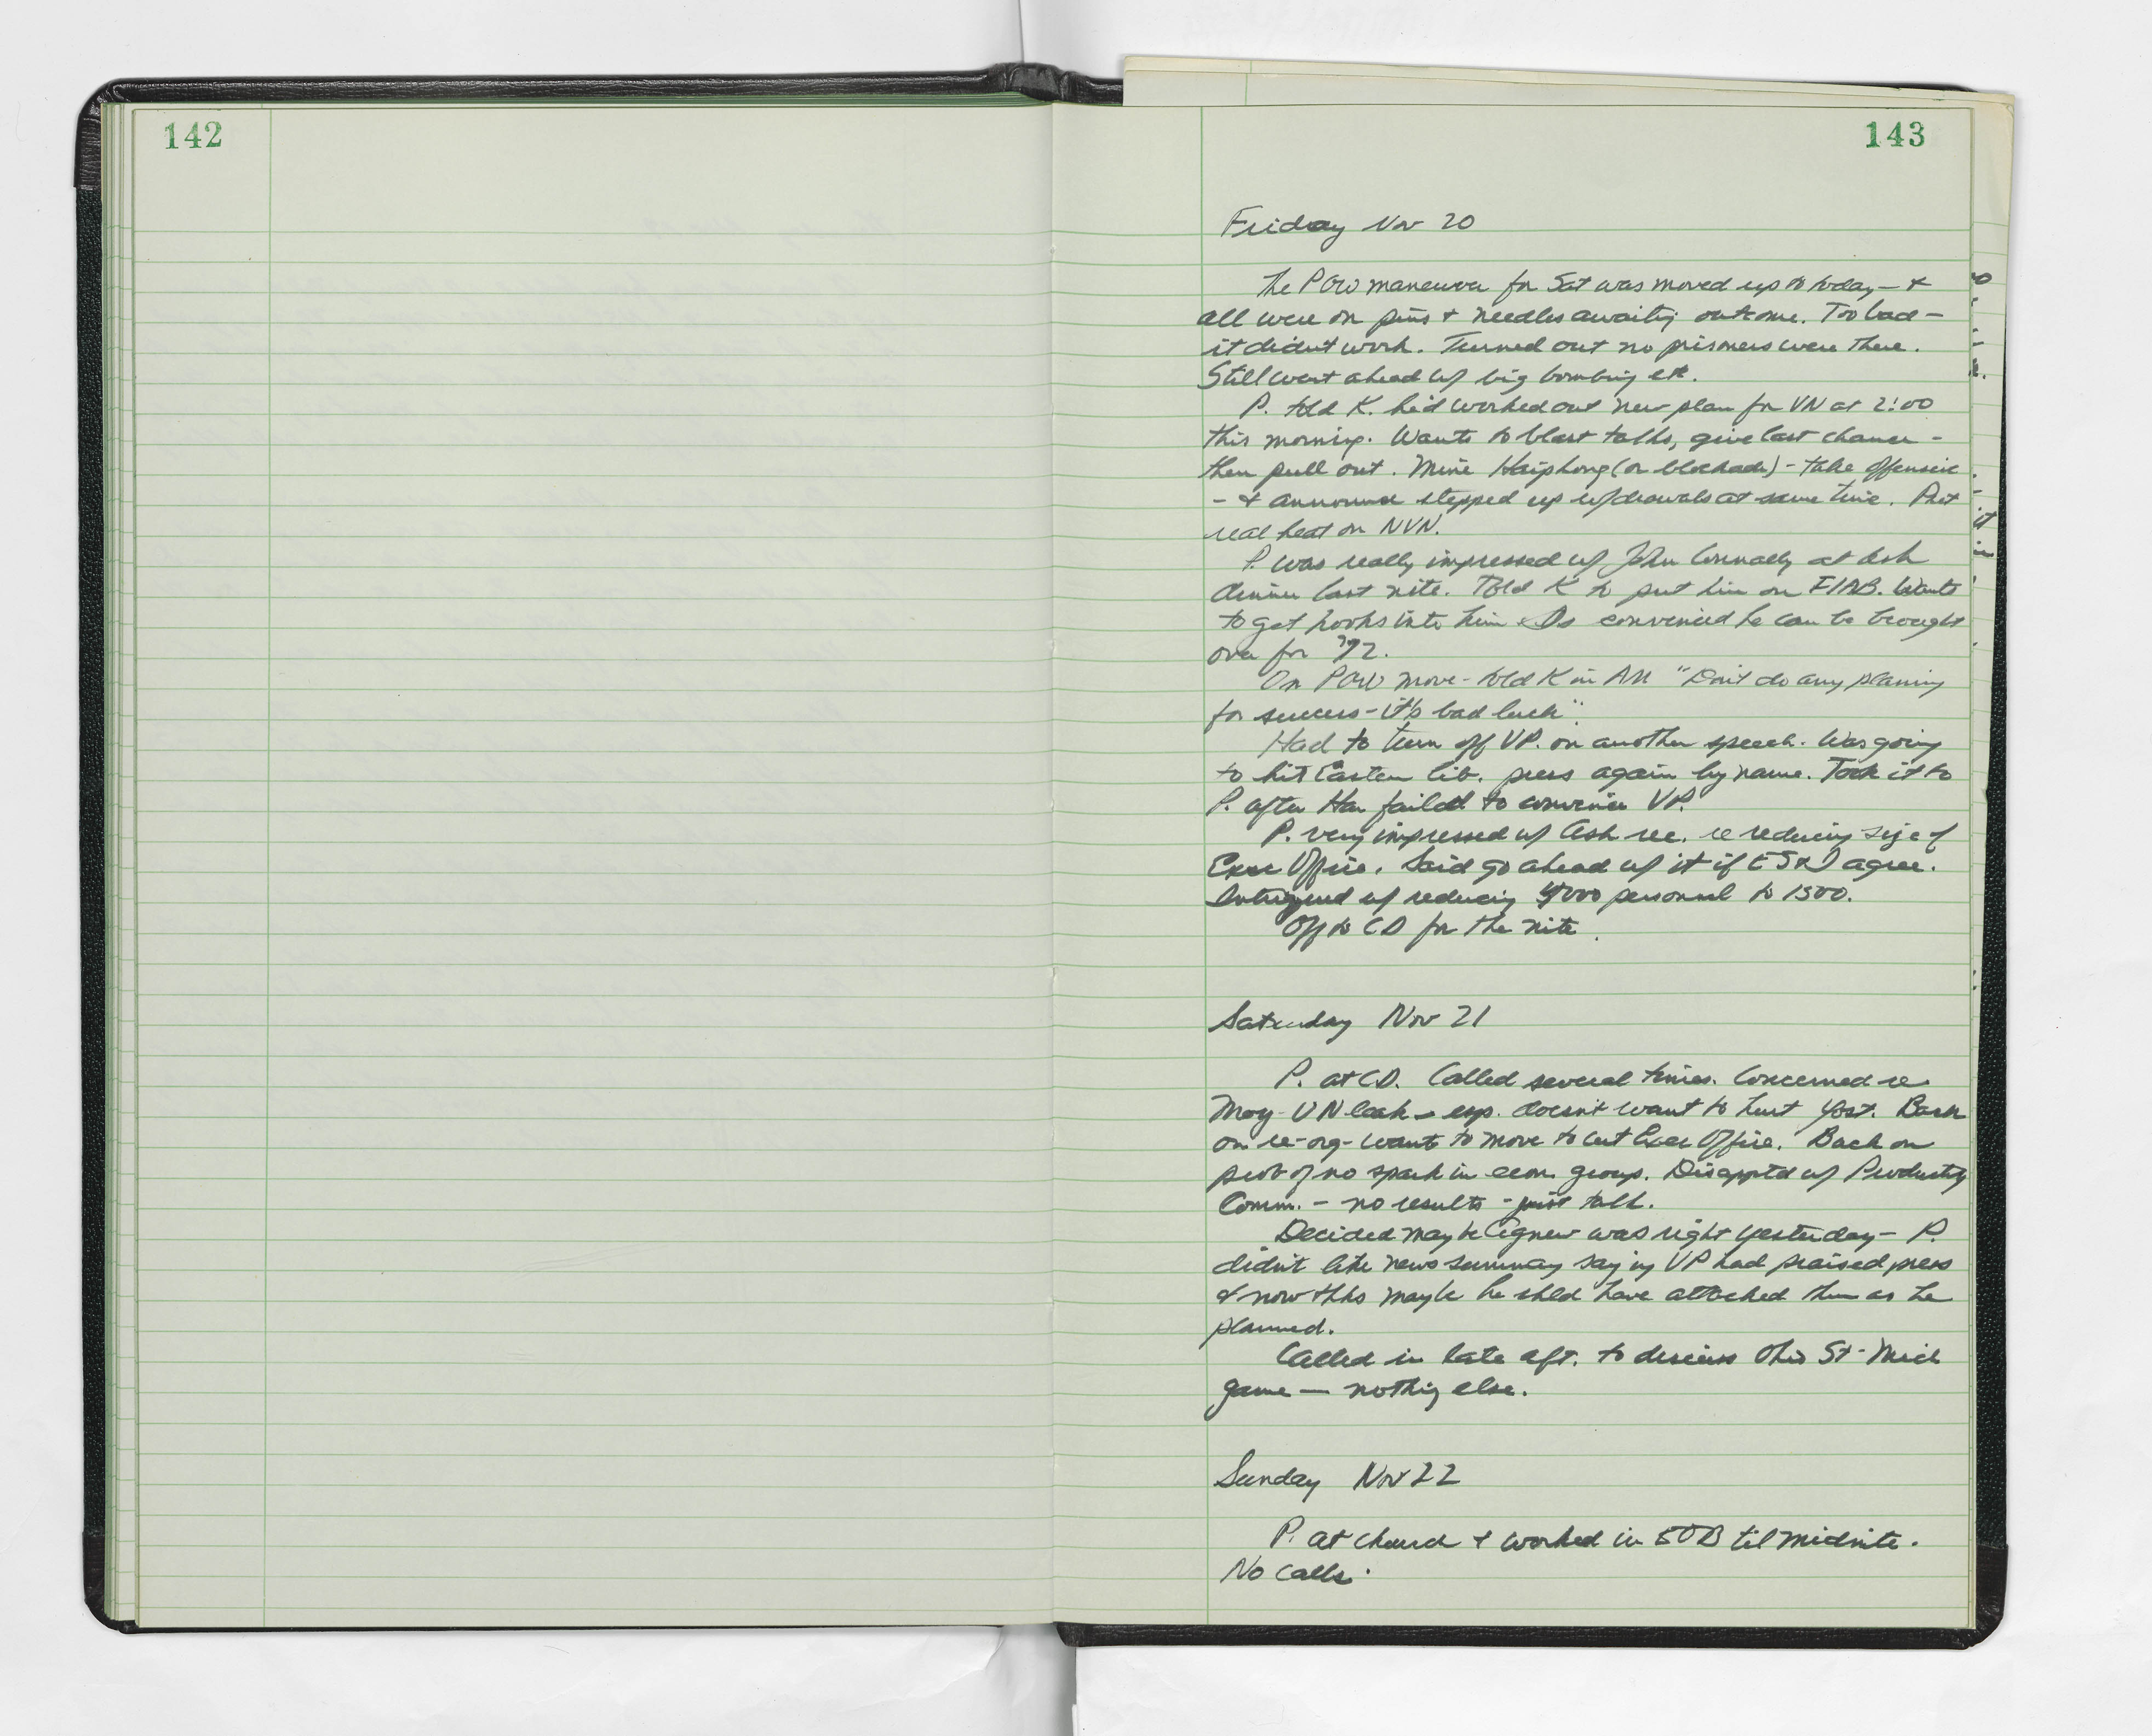 142
143
Friday Nov 20
The POW maneuver for Sat was moved up to today — &
all were on pins & needles awaiting outcome. Too bad —
it didnt work. Turned out no prisoners were there.
Still went ahead w/ big bombing etc.
P. told K. he'd worked out new plan for VN at 2:00
this morning. Wants to blast talks, give last chance -
then pull out. Mine Haiphong (or blockade) - take offensive
- & announce stepped up w/drawals at same time. Put
real heat on NVN.
P. was really impressed w/ John Connally at Ash
dinner last nite. Told K to put him on FIAB. Wants
to get hooks into him. Is convinced he can be brought
over for '72.
On POW move - told K in AM "Don't do any planning
for success - it's bad luck".
Had to turn off VP. on another speech. Was going
to hit Eastern lib. press again by name. Took it to
P. after Har failed to convince VP.
P. very impressed w/ Ash rec. re reducing size of
Exec Office. Said go ahead w/ it if E S & I agree.
Intrigued w/ reducing 4000 personnel to 1500.
Off to CD for the nite.
Saturday Nov 21
P. at CD. Called several times. Concerned re
Moy - UN leak - esp. doesn't want to hurt Yost. Back
on re-org - wants to move to cut Exec Office. Back on
prob of no spark in econ. group. Disapptd w/ Productivity
Comm. - no results - just talk.
Decided maybe Agnew was right yesterday - P.
didn't like news summary saying VP had praised press
& now thks maybe he shld have attacked them as he
planned.
Called in late aft. to discuss Ohio St - Mich
game — nothing else.
Sunday Nov 22
P. at church & worked in EOB til midnite.
No calls.